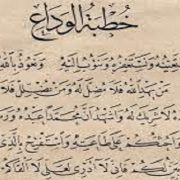 خطبة الوداع
نستعينه ونستغفره ونتوب إليه ونعوذ بالله
من يهد الله فلا مضل له ومن يضلل فلا
لا شريك له وأشهد أن محمدا عبده ور
وأحثكم على طاعته وأستفتح بالذي
لكم فإني لا أدري لعلي لا ألقاكم